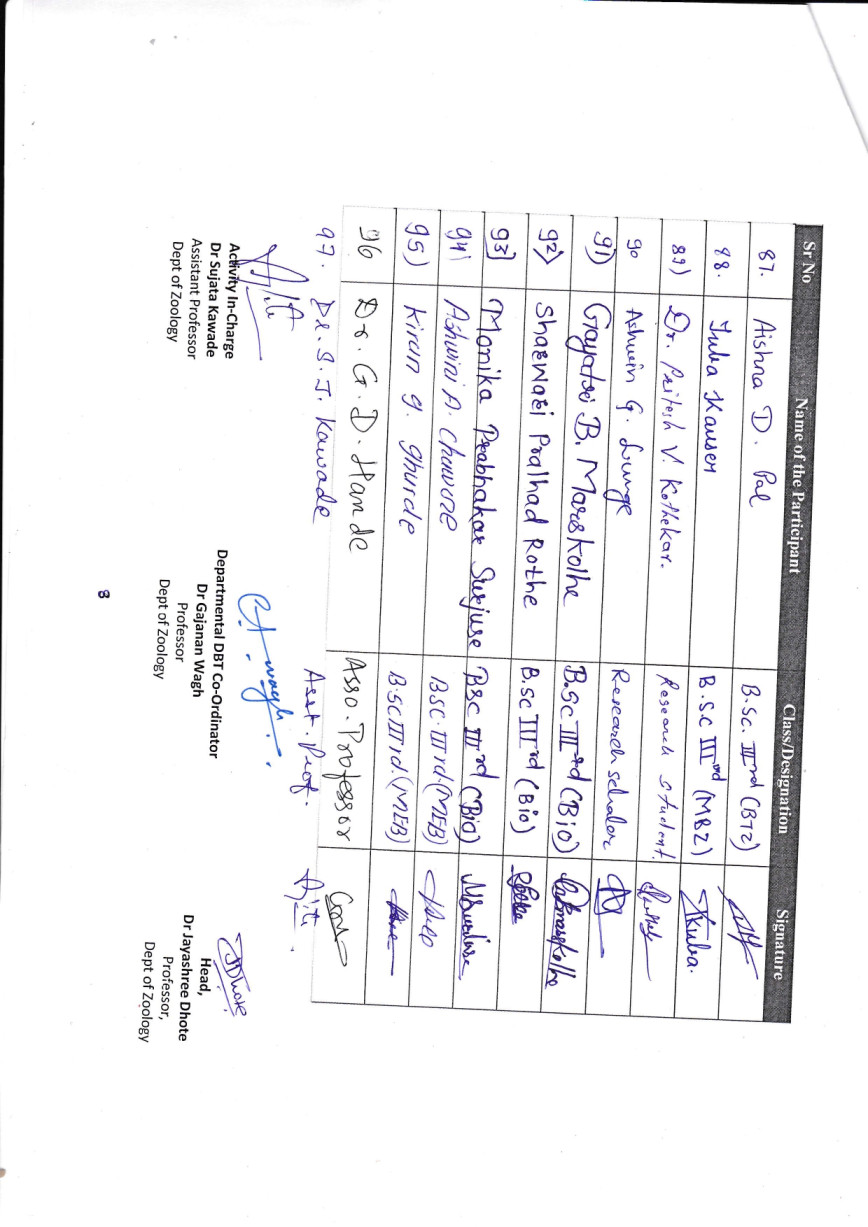 Sr No Name of the Participant Class/Designation Signature
87. Aishna D. Pal B.Sc. IIrd (BTZ)
88. Juba Kauser B.Sc IIIrd (MBZ)
89) Dr. Pritesh V. Kothekar. Research student.
90 Ashwin G. Lunge Research scholar
91) Gayatri B. Marskolhe B.Sc III rd (Bio)
92) Sharwari Pralhad Rothe B.Sc III rd (Bio)
93) Monika Prabhakar Surjuse BSc III rd (Bio)
94) Ashwini A. Chawore BSC.III rd.(MEB)
95) Kiran G. Ghurde B.SC III rd.(MEB)
96 Dr. G. D. Hande Asso. Professor
97. Dr. S. J. Kawade Asst. Prof.
G.A. wagh JDhote
Activity In-Charge Departmental DBT Co-Ordinator Head,
Dr Sujata Kawade Dr Gajanan Wagh Dr Jayashree Dhote
Assistant Professor Professor Professor,
Dept of Zoology Dept of Zoology Dept of Zoology
8